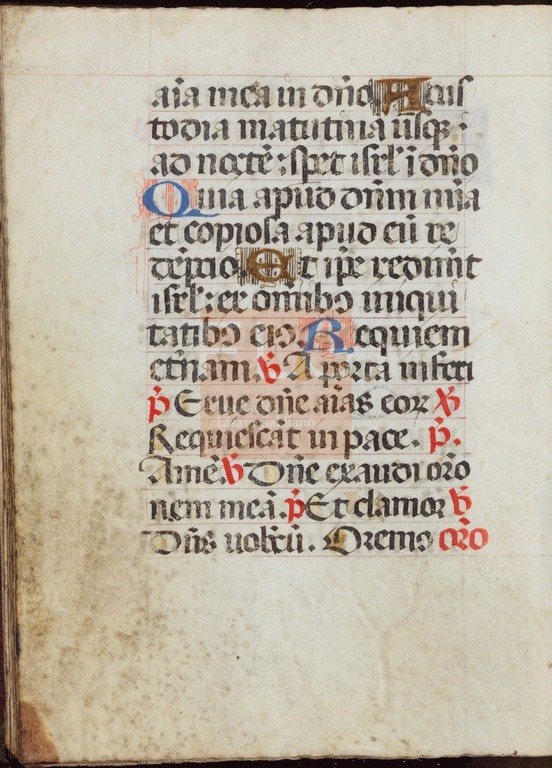 aīa mea in dn̄o. A cus
todia matutina usq̄ꝫ
ad noctē: spet isrl̄ ī dn̄o
Quia apud dn̄m mīa
et copiosa apud eū re
dēptio. Et ip̄e redimit
isrl̄: ex omībꝯ iniqui
tatibꝯ eiꝯ. Requiem
etnam. ℣ A porta inferi
p̄ Erue dn̄e aīas eoꝝ ℣
Requiescāt in pace. p̄.
Amē. ℣ Dn̄e exaudi oro
nem meā. p̄ Et clamor ℣
Dn̄s uobcū. Oremꝯ or̄o